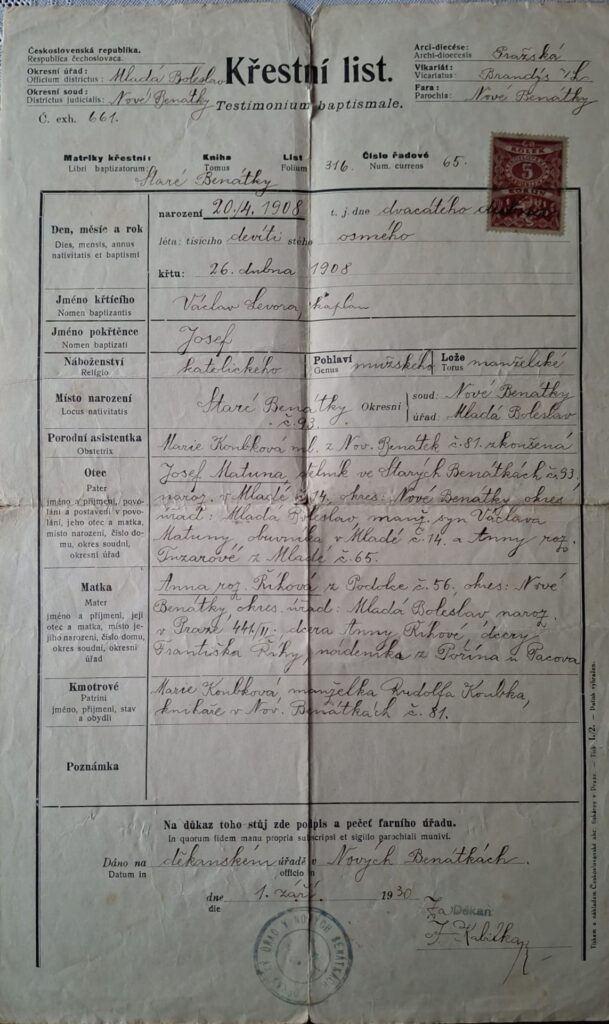 Československá republika.
Respublica čechoslovaca.
Okresní úřad: Mladá Boleslav
Officium districtus:
Okresní soud: Nové Benátky
Districtus judicialis:
Č. exh. 661.
Křestní list.
Testimonium baptismale.
Arci-diecése: Pražská
Archi-dioecesis
Vikariát: Brandýs n/L
Vicariatus:
Fara: Nové Benátky
Parochia:
Matriky křestní: Kniha List 316. Číslo řadové 65.
Libri baptizatorum: Tomus Folium Num. currens
Staré Benátky
KOLEK
5
Den, měsíc a rok
Dies, mensis, annus
nativitatis et baptismi
narození 20./4. 1908 t. j. dne dvacátého
létu: tisícího devíti stého osmého
křtu: 26. dubna 1908
Jméno křtícího
Nomen baptizantis
Václav Levora, kaplan
Jméno pokřtěnce
Nomen baptizati
Josef
Náboženství
Religio
katolického
Pohlaví
Genus
mužského
Lože
Torus
manželské
Místo narození
Locus nativitatis
Staré Benátky
č. 93.
Okresní
soud: Nové Benátky
úřad: Mladá Boleslav
Porodní asistentka
Obstetrix
Marie Koubková ml. z Nov. Benátek č. 81. zkoušená
Otec
Pater
jméno a příjmení, povo-
lání a postavení v povo-
lání, jeho otec a matka,
místo narození, číslo
domu, okres soudní,
okresní úřad
Josef Matuna, dělník ve Starých Benátkách č. 93,
naroz. v Mladé č. 14, okres: Nové Benátky okres.
úřad: Mladá Boleslav, manž. syn Václava
Matuny obuvníka v Mladé č. 14. a Anny roz.
z Mladé č. 65.
Matka
Mater
jméno a příjmení, její
otec a matka, místo je-
jího narození, číslo domu,
okres soudní, okresní
úřad
Anna roz. Říhová z Podolce č. 56, okres: Nové
Benátky, okres. úřad: Mladá Boleslav, naroz.
v Praze 441/II. dcera Anny Říhové, dcery
Františka Říhy, nádeníka z Pořína u Pacova
Kmotrové
Patrini
jméno, příjmení, stav
a obydlí
Marie Koubková, manželka Rudolfa Koubka,
knihaře v Nov. Benátkách č. 81.
Poznámka
Na důkaz toho stůj zde podpis a pečeť farního úřadu.
In quorum fidem manu propria subscripsi et sigillo parochiali munivi.
Dáno na děkanském úřadě v Nových Benátkách.
Datum in officio in
dne 1. září 1930
die
Za Děkan:
Tiskem a nákladem Československé akc. tiskárny v Praze. — Tisk I./2. — Patisk vyhrazen.